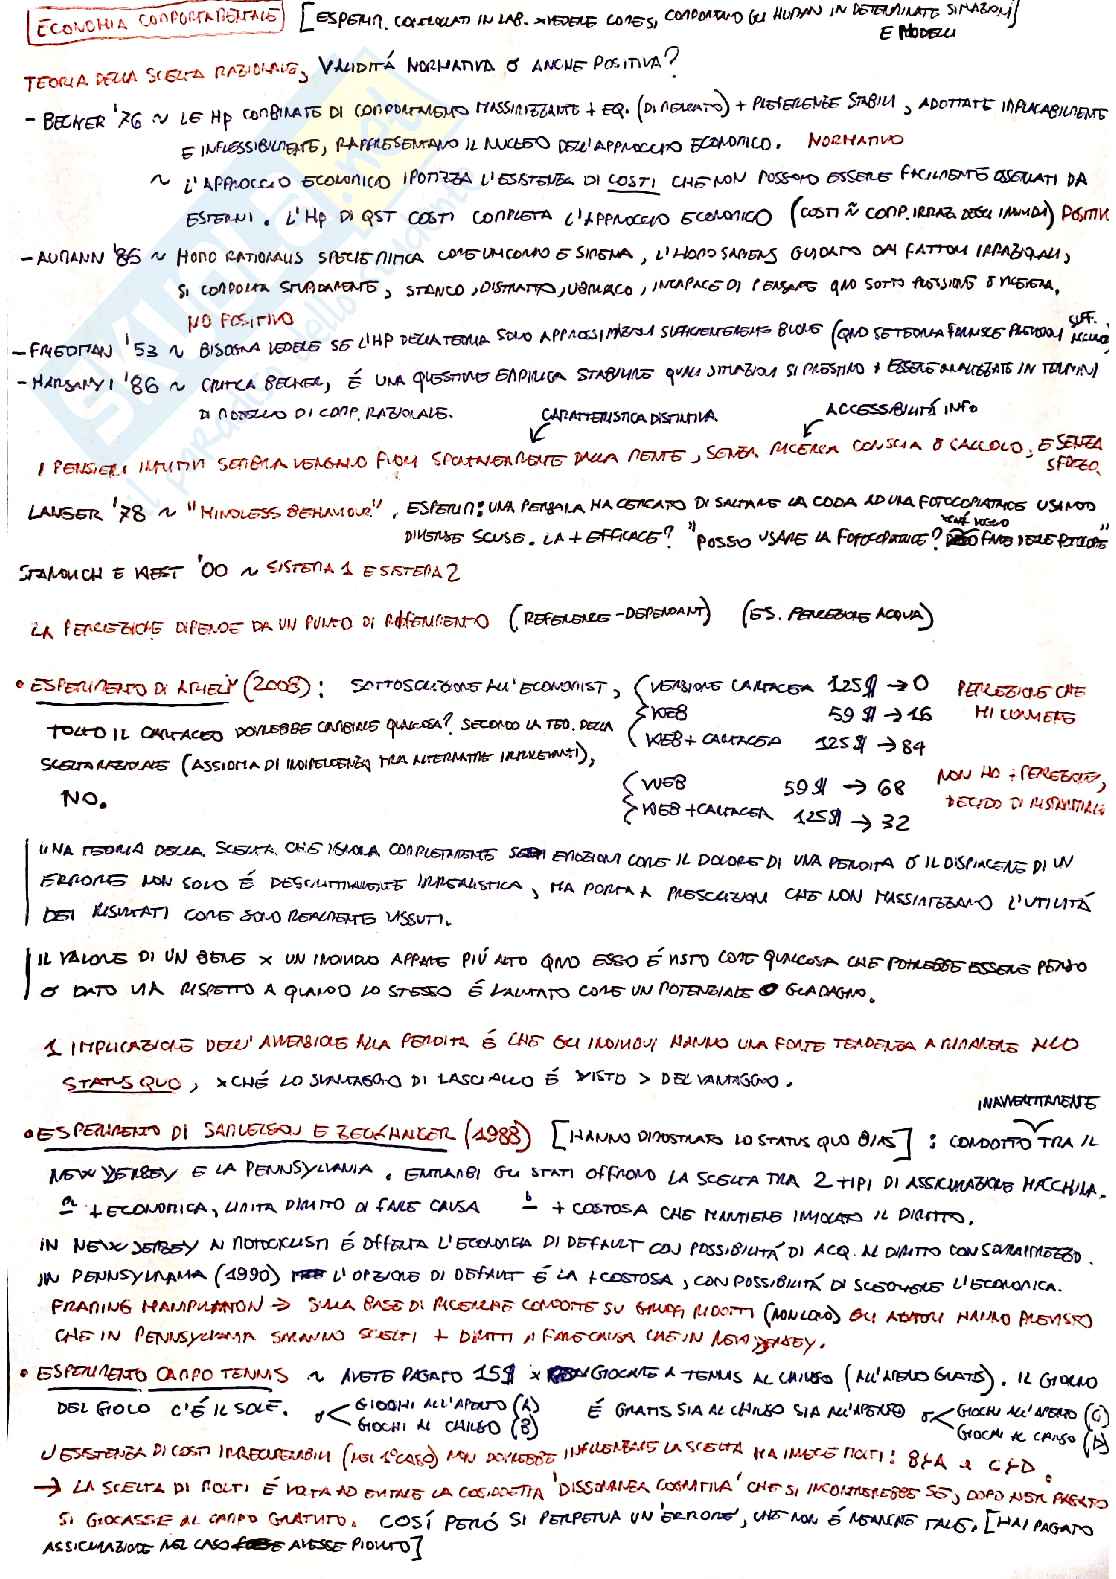 ECONOMIA COMPORTAMENTALE [ESPERIM. CONTROLLATI IN LAB. X VEDERE COME SI COMPORTANO GLI HUMAN IN DETERMINATE SITUAZIONI]
E MODELLI
TEORIA DELLA SCELTA RAZIONALE, VALIDITÀ NORMATIVA O ANCHE POSITIVA?
- BECKER '76 ~ LE Hp COMBINATE DI COMPORTAMENTO MASSIMIZZANTE + EQ. (DI MERCATO) + PREFERENZE STABILI, ADOTTATE IMPLACABILMENTE
E INFLESSIBILMENTE, RAPPRESENTANO IL NUCLEO DELL'APPROCCIO ECONOMICO. NORMATIVO
~ L'APPROCCIO ECONOMICO IPOTIZZA L'ESISTENZA DI COSTI CHE NON POSSONO ESSERE FACILMENTE OSSERVATI DA
ESTERNI. L'Hp DI QST COSTI COMPLETA L'APPROCCIO ECONOMICO (COSTI Ñ COMP. IRRAZ. DEGLI INDIVIDUI) POSITIV
- AUMANN '85 ~ HOMO RATIONALIS SPECIE MITICA COME UNICORNO E SIRENA, L'HOMO SAPIENS GUIDATO DAI FATTORI IRRAZIONALI,
SI COMPORTA STUPIDAMENTE, STANCO, DISTRATTO, UBRIACO, INCAPACE DI PENSARE QNO SOTTO PRESSIONE
NO POSITIVO
- FRIEDMAN '53 ~ BISOGNA VEDERE SE L'HP DELLA TEORIA SONO APPROSSIMAZIONI SUFFICIENTEMENTE BUONE (QNO SE TEORIA FORNISCE PREVISIONI SUFF.
- HARSANYI '86 ~ CRITICA BECKER, É UNA QUESTIONE EMPIRICA STABILIRE QUALI SITUAZIONI SI PRESTINO A ESSERE ANALIZZATE IN TERMINI
DI MODELLO DI COMP. RAZIONALE. CARATTERISTICA DISTINTIVA ACCESSIBILITÁ INFO
I PENSIERI INTUITIVI SEMBRA VENGANO FUORI SPONTANEAMENTE DALLA MENTE, SENZA RICERCA CONSCIA O CALCOLO, E SENZA
SFORZO.
LANGER '78 ~ "MINDLESS BEHAVIOUR", ESPERIM: UNA PERSONA HA CERCATO DI SALTARE LA CODA AD UNA FOTOCOPIATRICE USANDO
DIVERSE SCUSE. LA + EFFICACE? "POSSO USARE LA FOTOCOPIATRICE? XCHÉ VOGLIO FARE DELLE FOTOCOPIE"
STANOVICH E WEST '00 ~ SISTEMA 1 E SISTEMA 2
LA PERCEZIONE DIPENDE DA UN PUNTO DI RIFERIMENTO (REFERENCE-DEPENDANT) (ES. PERCEZIONE ACQUA)
• ESPERIMENTO DI ARIELY (2008): SOTTOSCRIZIONE ALL'ECONOMIST, VERSIONE CARTACEA 125$ → 0 PERCEZIONE CHE
WEB 59$ → 16 MI CONVIENE
TOLTO IL CARTACEO DOVREBBE CAMBIARE QUALCOSA? SECONDO LA TEO. DELLA WEB + CARTACEA 125$ → 84
SCELTA RAZIONALE (ASSIOMA DI INDIPENDENZA TRA ALTERNATIVE IRRILEVANTI),
NO. WEB 59$ → 68 NON HO + PERCEZIONE,
WEB + CARTACEA 125$ → 32 DECIDO DI RISPARMIARE
UNA TEORIA DELLA SCELTA CHE IGNORA COMPLETAMENTE EMOZIONI COME IL DOLORE DI UNA PERDITA O IL DISPIACERE DI UN
ERRORE NON SOLO É DESCRITTIVAMENTE IRREALISTICA, MA PORTA A PRESCRIZIONI CHE NON MASSIMIZZANO L'UTILITÁ
DEI RISULTATI COME SONO REALMENTE VISSUTI.
IL VALORE DI UN BENE X UN INDIVIDUO APPARE PIÚ ALTO QNO ESSO É VISTO COME QUALCOSA CHE POTREBBE ESSERE PERSO
O DATO VIA RISPETTO A QUANDO LO STESSO É VALUTATO COME UN POTENZIALE GUADAGNO.
1 IMPLICAZIONE DELL'AVVERSIONE ALLA PERDITA É CHE GLI INDIVIDUI HANNO UNA FORTE TENDENZA A RIMANERE NELLO
STATUS QUO, XCHÉ LO SVANTAGGIO DI LASCIARLO É VISTO > DEL VANTAGGIO.
INAVVERTITAMENTE
• ESPERIMENTO DI SAMUELSON E ZECKHAUSER (1988) [HANNO DIMOSTRATO LO STATUS QUO BIAS]: CONDOTTO TRA IL
NEW JERSEY E LA PENNSYLVANIA. ENTRAMBI GLI STATI OFFRONO LA SCELTA TRA 2 TIPI DI ASSICURAZIONE MACCHINA.
a + ECONOMICA, LIMITA DIRITTO DI FARE CAUSA b + COSTOSA CHE MANTIENE INVIOLATO IL DIRITTO.
IN NEW JERSEY AI MOTOCICLISTI É OFFERTA L'ECONOMICA DI DEFAULT CON POSSIBILITÁ DI ACQ. AL DIRITTO CON SOVRAPPREZZO.
IN PENNSYLVANIA (1990) L'OPZIONE DI DEFAULT É LA + COSTOSA, CON POSSIBILITÁ DI SCEGLIERE L'ECONOMICA.
FRAMING MANIPULATION → SULLA BASE DI RICERCHE CONDOTTE SU GRUPPI RIDOTTI GLI AUTORI HANNO PREVISTO
CHE IN PENNSYLVANIA SARANNO SCELTI + DIRITTI A FARE CAUSA CHE IN NEW JERSEY.
• ESPERIMENTO CAMPO TENNIS ~ AVETE PAGATO 15$ X GIOCARE A TENNIS AL CHIUSO (ALL'APERTO GRATIS). IL GIORNO
DEL GIOCO C'É IL SOLE. O GIOCHI ALL'APERTO (A) É GRATIS SIA AL CHIUSO SIA ALL'APERTO O GIOCHI ALL'APERTO (C)
GIOCHI AL CHIUSO (B) GIOCHI AL CHIUSO (D)
L'ESISTENZA DI COSTI IRRECUPERABILI (NEL 1° CASO) NON DOVREBBE INFLUENZARE LA SCELTA MA INVECE MOLTI: B≻A e C≻D.
→ LA SCELTA DI MOLTI É VOLTA AD EVITARE LA COSIDDETTA 'DISSONANZA COGNITIVA' CHE SI INCONTREREBBE SE, DOPO AVER PAGATO
SI GIOCASSE AL CAMPO GRATUITO. COSÍ PERÓ SI PERPETUA UN 'ERRORE', CHE NON É NEANCHE TALE. [HAI PAGATO
ASSICURAZIONE NEL CASO AVESSE PIOVUTO]